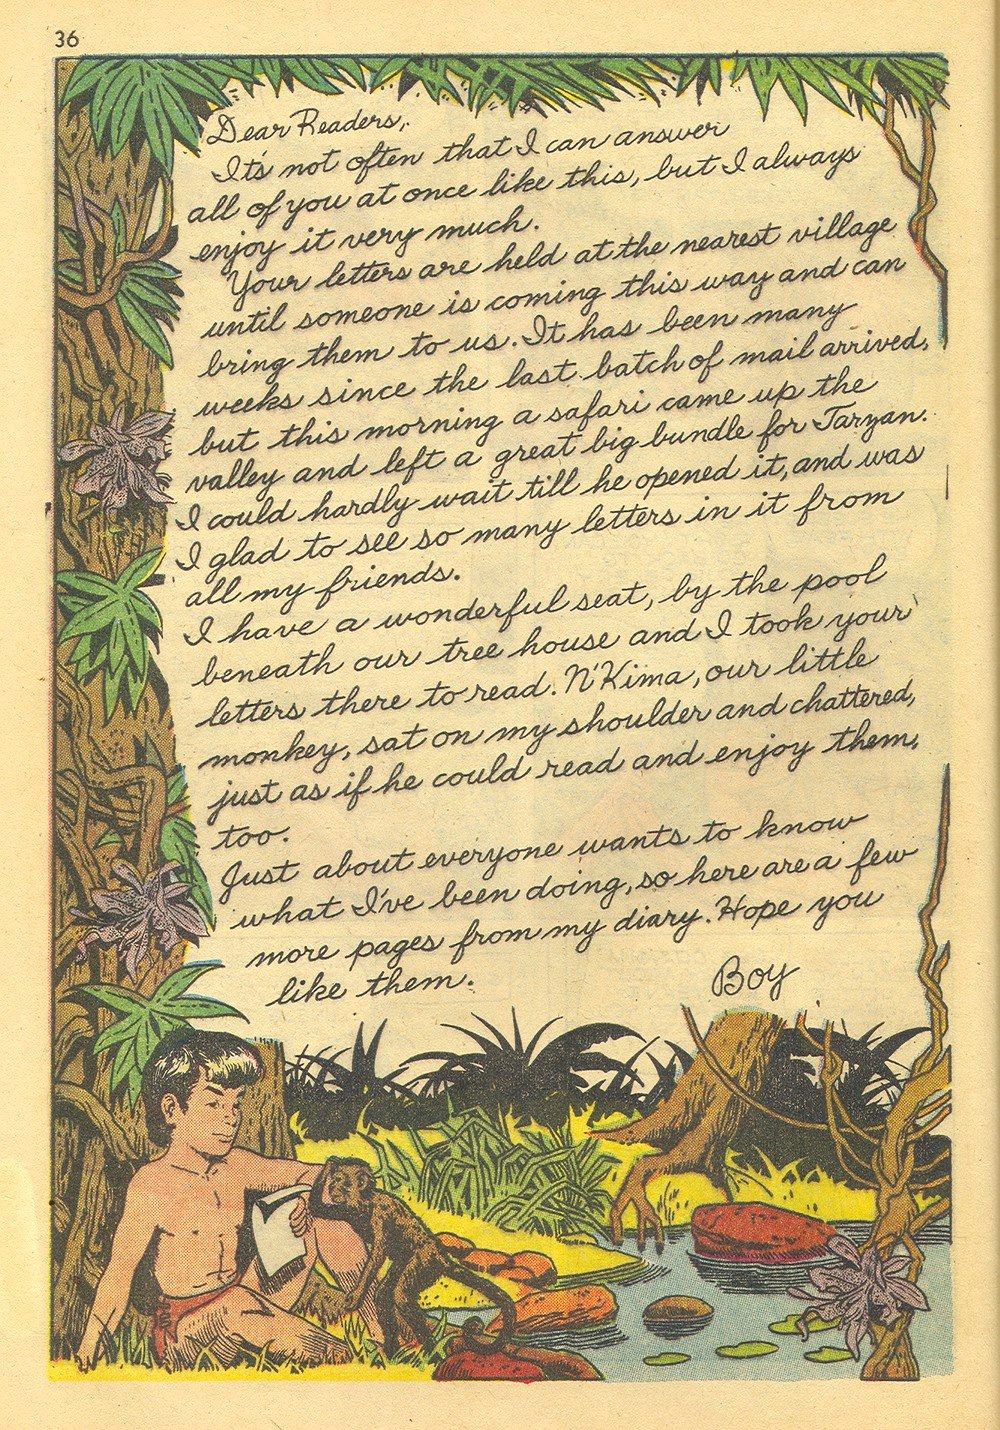 36
Dear Readers,
It's not often that I can answer
all of you at once like this, but I always
enjoy it very much.
Your letters are held at the nearest village
until someone is coming this way and can
bring them to us. It has been many
weeks since the last batch of mail arrived,
but this morning a safari came up the
valley and left a great big bundle for Tarzan.
I could hardly wait till he opened it, and was
I glad to see so many letters in it from
all my friends.
I have a wonderful seat, by the pool
beneath our tree house and I took your
letters there to read. N'Kima, our little
monkey, sat on my shoulder and chattered,
just as if he could read and enjoy them,
too.
Just about everyone wants to know
what I've been doing, so here are a few
more pages from my diary. Hope you
like them.
Boy